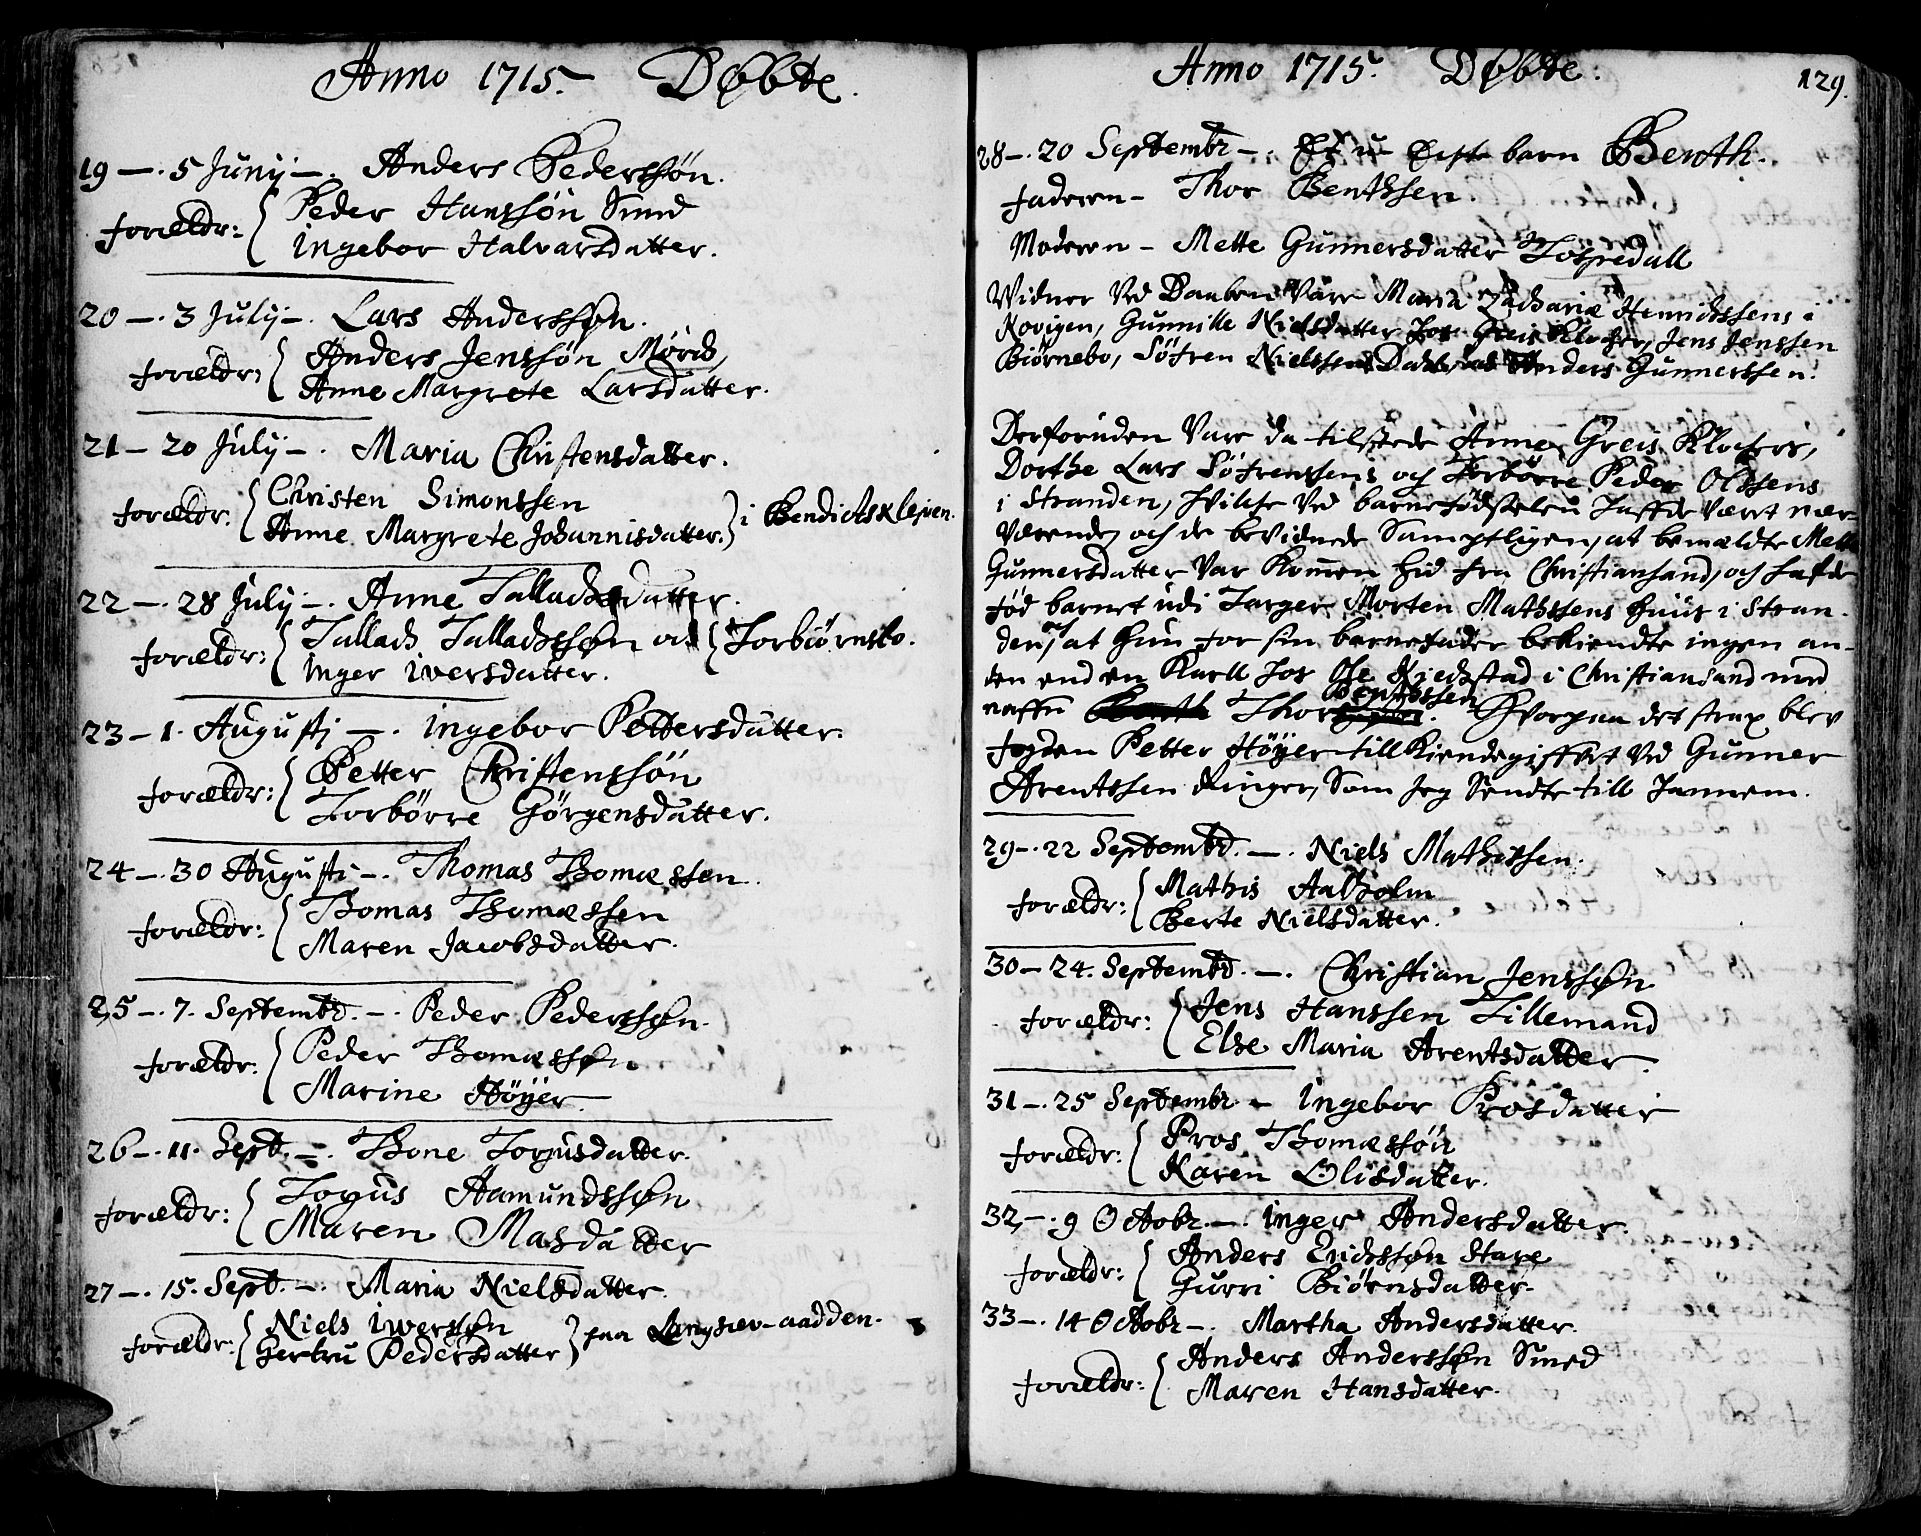 Anno 1715. Døbte.
19 —. 5 Junij —. Anders Pederssøn.
forældr: Peder Hanssøn Smed
ingebor Halvarsdatter.
20 —. 3 Julij —. Lars Anderssøn.
forældr: Anders Jenssøn Mørch,
Anne Margrete Larsdatter.
21 — 20 Julij —. Maria Christensdatter.
forældr. Christen Simonssen
Anne Margrete Johannisdatter. i Bendictsklejven.
22 —. 28 Julij —. Anne Talladsdatter.
forældr: Tallach Talladssøn ved Torbiørnsbo.
inger iversdatter.
23 — 1. Augusti —. ingebor Pettersdatter.
forældr: Petter Christenssøn
Torbörre Görgensdatter.
24 —. 30 Augusti —. Thomas Thomæssen.
forældr: Thomas Thomæssen
Maren Jacobsdatter.
25 —. 7. Septembr. —. Peder Pederssøn.
forældr: Peder Thomæssøn
Marine Höÿer.
26 —. 11. Sept. —. Thone Torjusdatter.
forældr: Torjus Aamundssøn
Maren Masdatter
27 —. 15. Sept. —. Maria Nielsdatter.
forældr: Niels iverssøn
Gertru Pedersdatter paa Langsæv-aadden.
Anno 1715. Døbte. 129.
28 —. 20 Septembr —. Et u Egte barn Benth.
faderen — Thor Benthssen.
Moderen — Mette Gunnersdatter
Widner Ved Daaben Vare Maria Zachariæ Henrichssens i
Kovigen, Gunnille Nielsdatter hos Greis Klocher, Jens Jenssen
Biørnebo, Söfren Nielssens Anders Gunnerssen.
Derforuden Vare da tilstede Anne Greis Klochers,
Dorthe Lars Söfrenssens och Torbörre Peder Olssens
i Stranden, hvilche Ved barnefödselen haffde Været nær-
værende, och de bevidnede Samptligen, at bemældte Mette
Gunnersdatter Var Kommen hid fra Christiansand, och hafde
fød barnet udi Targer Morten Mathssens huus i Stran-
den, at hun for sin barnefader bekiendte ingen an-
den end en Karll hos Ole Kiedsstad i Christiansand med
naffn Thor Benthssen. Hvorpaa det strax blev
fogden Petter Höÿer tillKiendegiffvet Ved Gunner
Arentssen Ringer, Som Jeg Sendte till hannem.
29 —. 22 Septembr. —. Niels Mathissen.
forældr: Mathis Aalholm
Berte Nielsdatter.
30 — 24. Septembr. —. Christian Jenssøn
forældr: Jens Hanssen Tillemand
Else Maria Arentsdatter.
31 —. 25 Septembr. — ingebor Prosdatter
forældr: Pros Thomæssøn
Karen Olisdatter.
32 —. 9 Octobr. —. inger Andersdatter.
forældr: Anders Erichssøn Stare
Gurri Biørnsdatter.
33 —. 14 Octobr —. Martha Andersdatter.
forældr: Anders Anderssøn Smed
Maren Hansdatter.